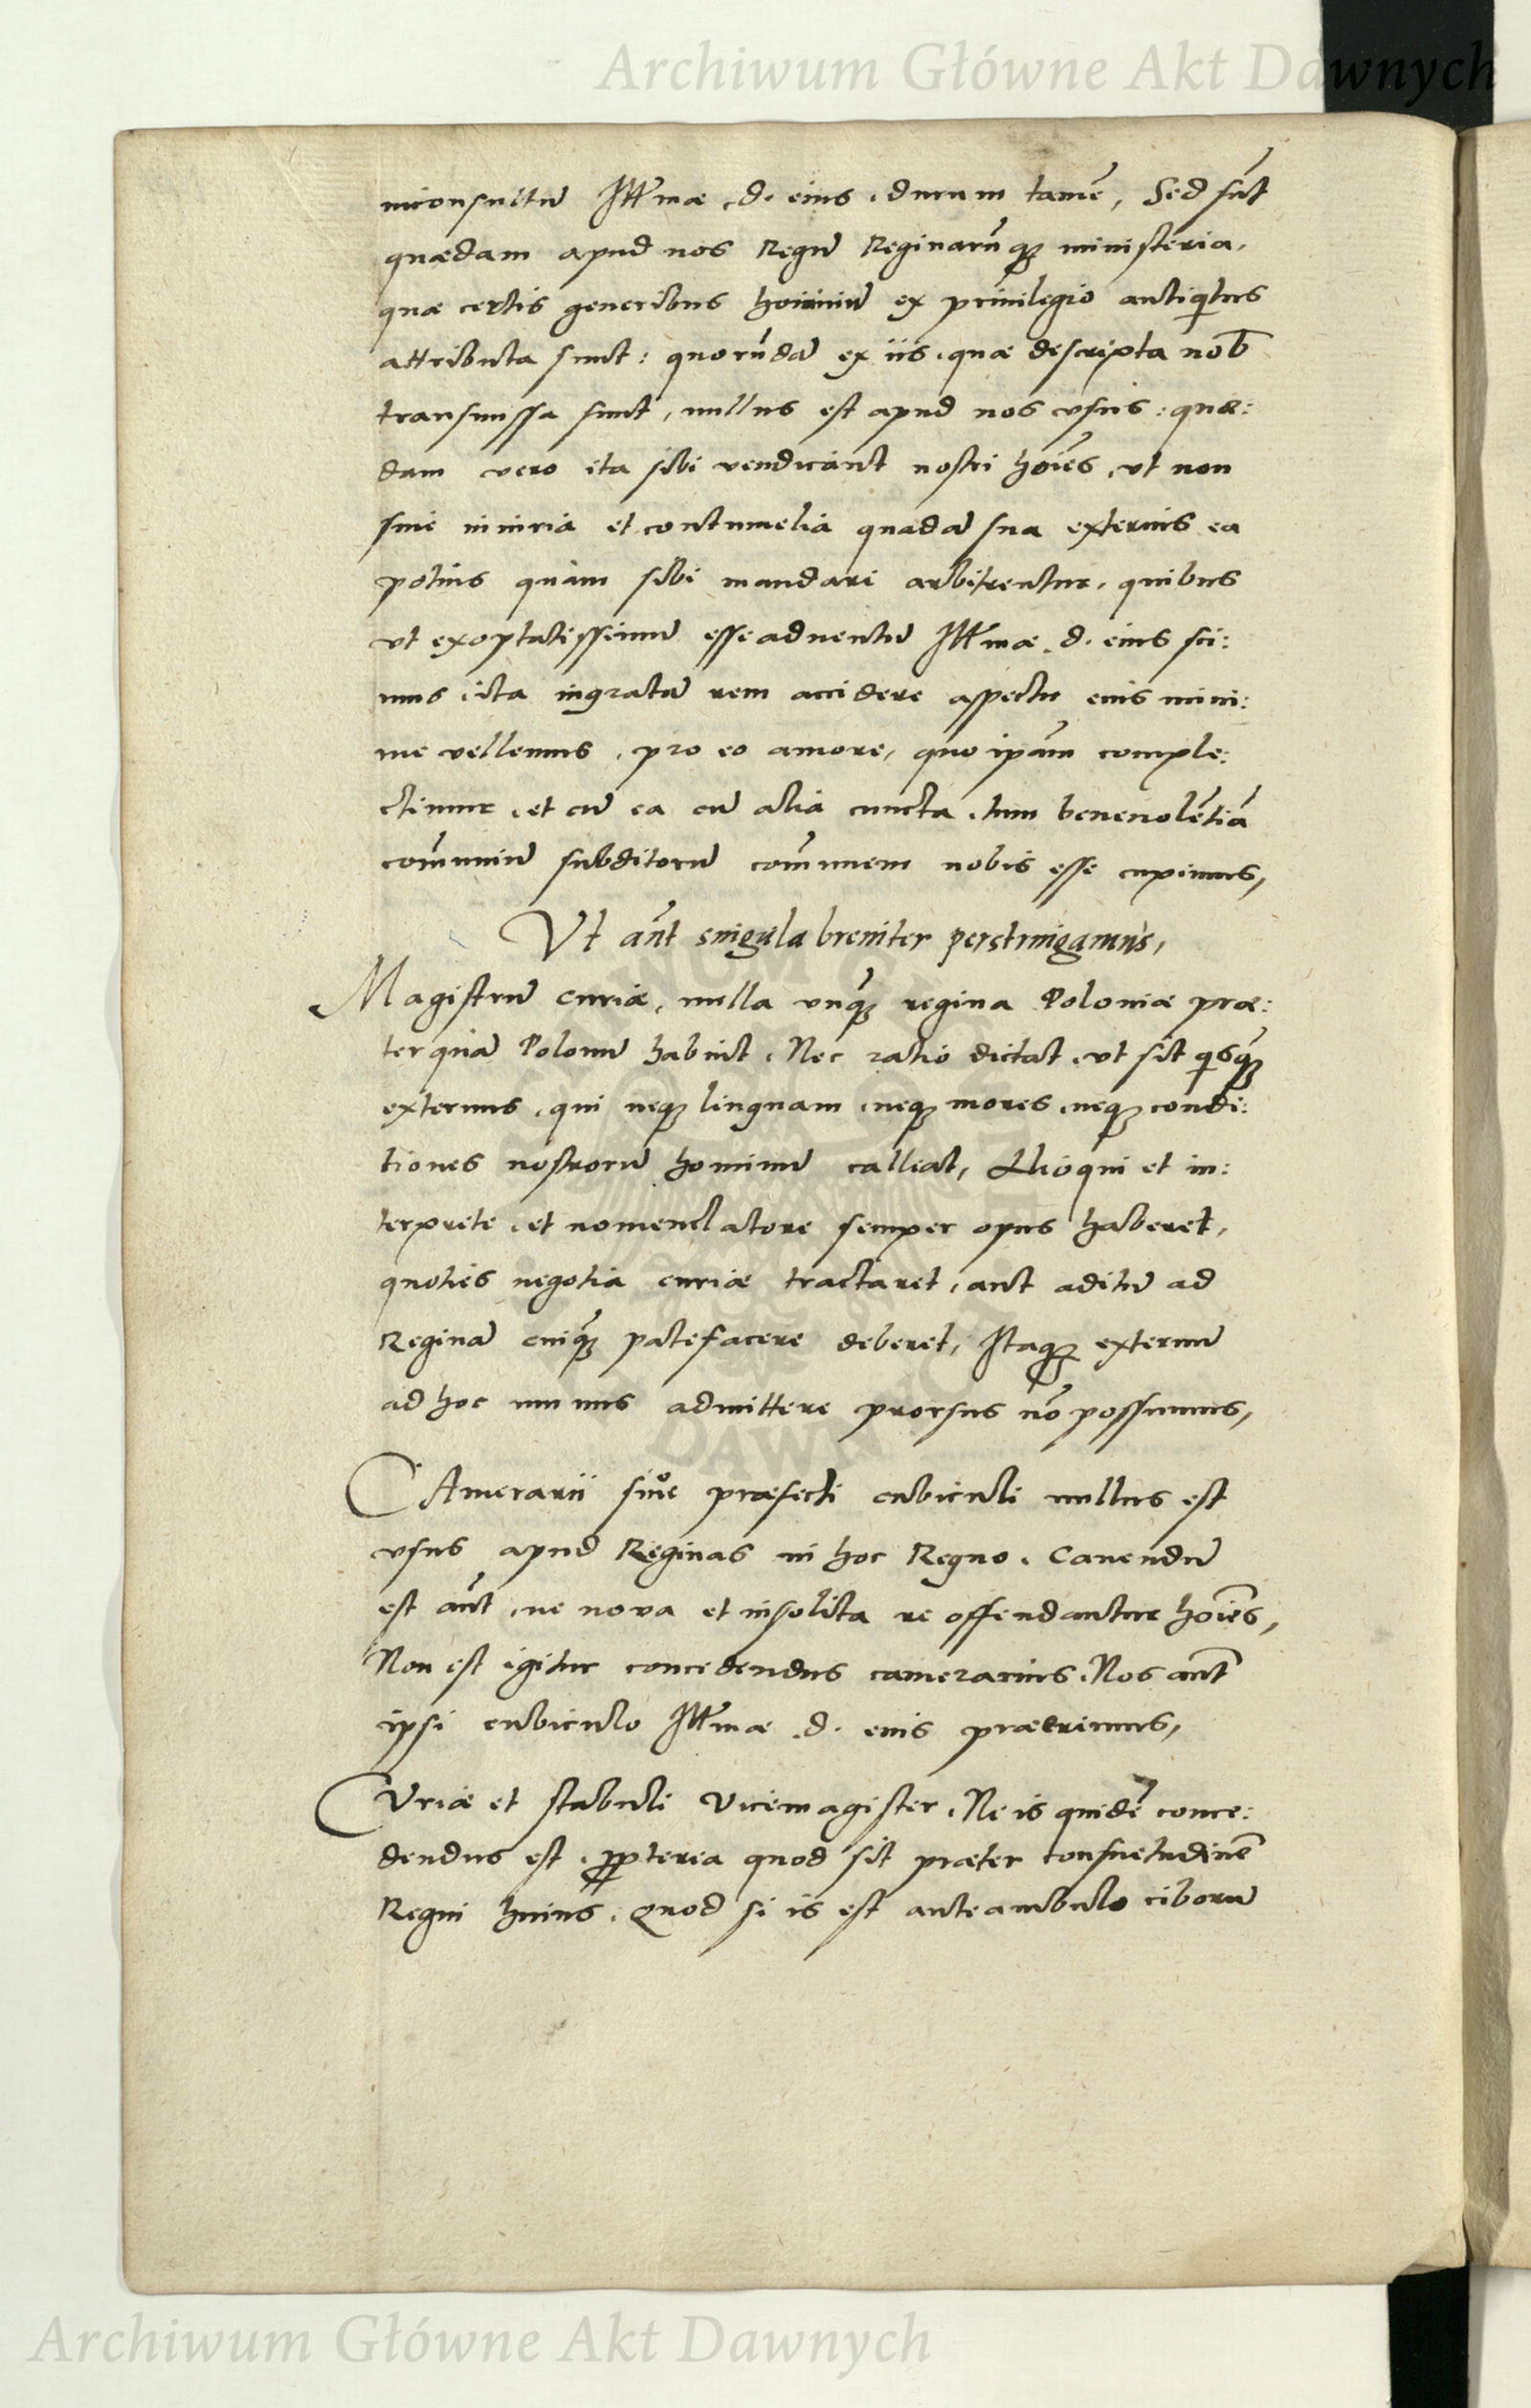 Archiwum Główne Akt Dawnych
inconsultū Illmae d. eius ducum tamē, Sed sūt
quaedam apud nos Regū Reginarūq; ministeria,
quae certis generibus hoīminū ex privilegio antiqitus
attributa sunt: quorūdā ex iis, quae descripta nob
transmissa sunt, nullus est apud nos usus: quae:
dam vero ita sibi vendicant nostri hoīes, ut non
sine iniuria et contumelia quadā sua externis ea
potius quàm sibi mandari arbitrentur, quibus
ut exoptatissimū esse adventū Illmae d. eius sci:
mus, ita ingratā rem accidere aspectu eius mini:
me vellemus, pro eo amore, quo ipām comple:
ctimur, et cū ea cū alia cuncta, tum benevolētiā
com̄uniū subditorū com̄unem nobis esse cupimus,
Ut aūt singula breviter perstringamus,
Magistrū Curiae, nulla unq̄; regina Poloniae prae:
terquā Polonū habuit. Nec ratio dictat, ut sit qisq̄;
externus, qui neq; linguam, neq; mores, neq; condi:
tiones nostrorū hominū calleat, Alioqui et in:
terprete, et nomenclatore semper opus haberet,
quoties negotia curiae tractaret, aut aditū ad
Reginā cuiq̄; patefacere deberet, Itaq; externū
ad hoc munus admittere prorsus nō possumus,
CAmerarii sive praefecti cubiculi nullus est
usus apud Reginas in hoc Regno. Cavendū
est aūt, ne nova et insolita re offendantur hoīes,
Non est igitur concedendus camerarius. Nos aūt
ipsi cubiculo Illmae d. eius praeerimus,
CUriae et stabuli Vicemagister. Ne is quidē conce:
dendus est, propterea quod sit praeter consuetudinē
Regni huius. Quod si is est anteambulo ciborū
Archiwum Główne Akt Dawnych